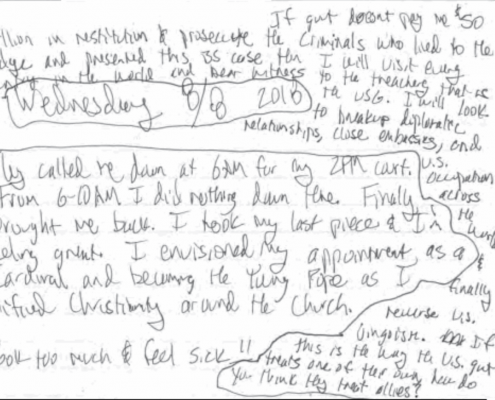 If gut doesnt pay me $50
llion in restitution & prosecute the Criminals who lied to the
dge and presented this BS case then I will visit every
in the world and bear witness to the treachery that is
the USG. I will look
to breakup diplomatic
relationships, close embassies, end
U.S.
occupation
across
the
world
&
finally
reverse U.S.
If
this is the way the U.S. gut
treats one of their own, how do
you think they treat allies?
Wednesday 8/8 2018
ey called me down at 6AM for my 2PM court.
From 6-10AM I did nothing down there. Finally,
rought me back. I took my last piece & I'm
eeling great. I envisioned my appointment as a
Cardinal and becoming the Young Pope as I
nified Christianity around the Church.
ook too much & feel sick!!